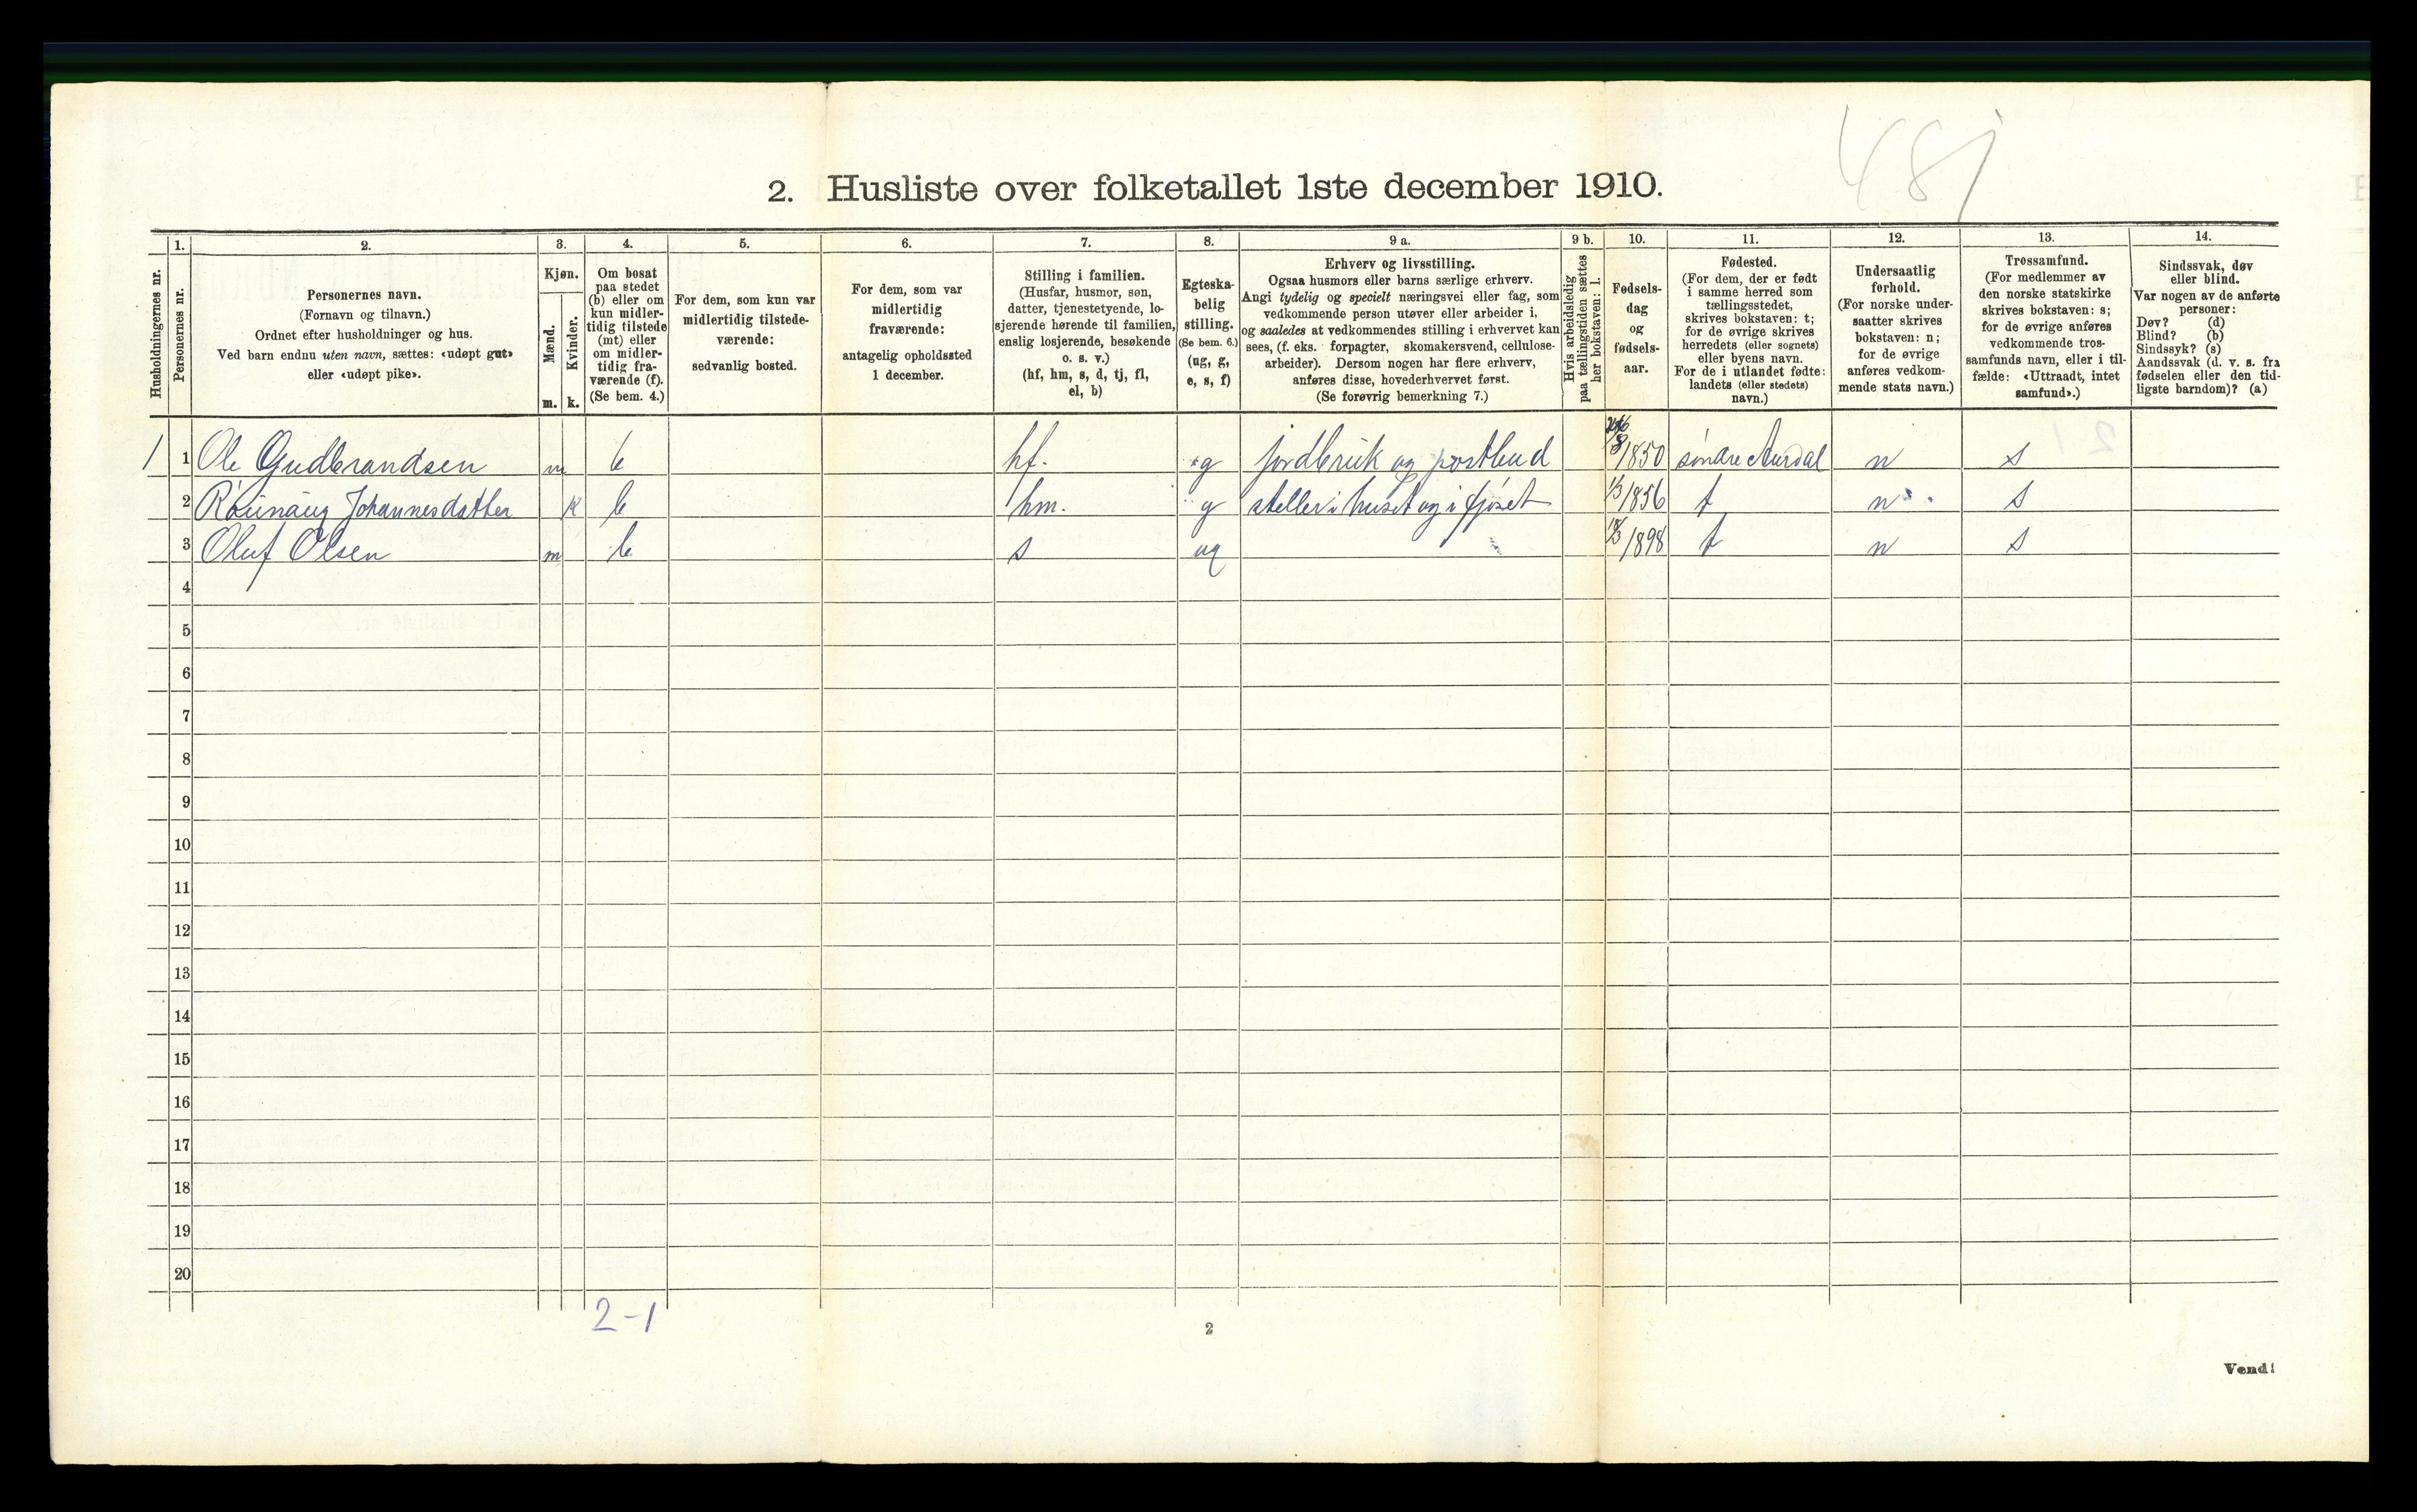 481
2. Husliste over folketallet 1ste december 1910.
Husholdningernes nr.
1.
Personernes nr.
2.
Personernes navn.
(Fornavn og tilnavn.)
Ordnet efter husholdninger og hus.
Ved barn endnu uten navn, sættes: «udøpt gut»
eller «udøpt pike».
3.
Kjøn.
Mænd.
Kvinder.
m. k.
4.
Om bosat
paa stedet
(b) eller om
kun midler-
tidig tilstede
(mt) eller
om midler-
tidig fra-
værende (f).
(Se bem. 4.)
5.
For dem, som kun var
midlertidig tilstede-
værende:
sedvanlig bosted.
6.
For dem, som var
midlertidig
fraværende:
antagelig opholdssted
1 december.
7.
Stilling i familien.
(Husfar, husmor, søn,
datter, tjenestetyende, lo-
sjerende hørende til familien,
enslig losjerende, besøkende
o. s. v.)
(hf, hm, s, d, tj, fl,
el, b)
8.
Egteska-
belig
stilling.
(Se bem. 6.)
(ug, g,
e, s, f)
9 a.
Erhverv og livsstilling.
Ogsaa husmors eller barns særlige erhverv.
Angi tydelig og specielt næringsvei eller fag, som
vedkommende person utøver eller arbeider i,
og saaledes at vedkommendes stilling i erhvervet kan
sees, (f. eks. forpagter, skomakersvend, cellulose-
arbeider). Dersom nogen har flere erhverv,
anføres disse, hovederhvervet først.
(Se forøvrig bemerkning 7.)
9 b.
Hvis arbeidsledig
paa tællingstiden sættes
her bokstaven: l.
10.
Fødsels-
dag
og
fødsels-
aar.
11.
Fødested.
(For dem, der er født
i samme herred som
tællingsstedet,
skrives bokstaven: t;
for de øvrige skrives
herredets (eller sognets)
eller byens navn.
For de i utlandet fødte:
landets (eller stedets)
navn.)
12.
Undersaatlig
forhold.
(For norske under-
saatter skrives
bokstaven: n;
for de øvrige
anføres vedkom-
mende stats navn.)
13.
Trossamfund.
(For medlemmer av
den norske statskirke
skrives bokstaven: s;
for de øvrige anføres
vedkommende tros-
samfunds navn, eller i til-
fælde: «Uttraadt, intet
samfund».)
14.
Sindssvak, døv
eller blind.
Var nogen av de anførte
personer:
Døv? (d)
Blind? (b)
Sindssyk? (s)
Aandssvak (d. v. s. fra
fødselen eller den tid-
ligste barndom)? (a)
1 1 Ole Gudbrandsen m b hf. g jordbruk og postbud 1850 søndre Aurdal n s
2 Rönnaug Johannesdatter k b hm. g steller i huset og i fjöset 1/3 1856 t n s
3 Oluf Olsen m b s ug 1898 t n s
4
5
6
7
8
9
10
11
12
13
14
15
16
17
18
19
20
2-1
2
Vend!